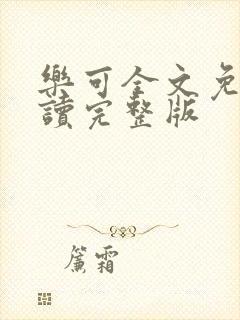 樂可全文免
讀完整版
簾霜